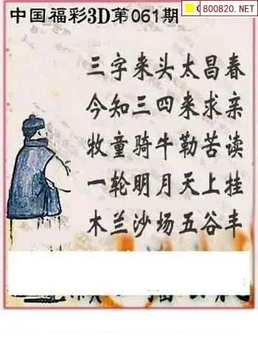 C800820.NET
中国福彩3D第061期
三字来头太昌春
今知三四来求亲
牧童骑牛勒苦读
一轮明月天上挂
木兰沙场五谷丰